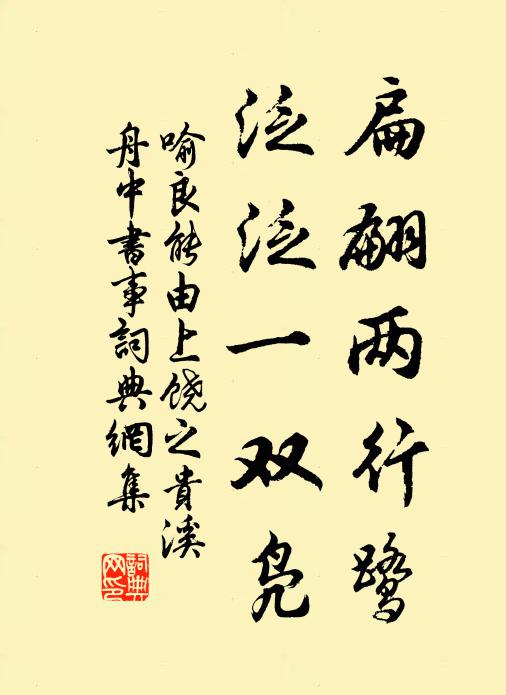 扁翩两行鹭
泛泛一双凫
喻良能由上饶之貴溪
舟中書事詞典網集
詞典
网印